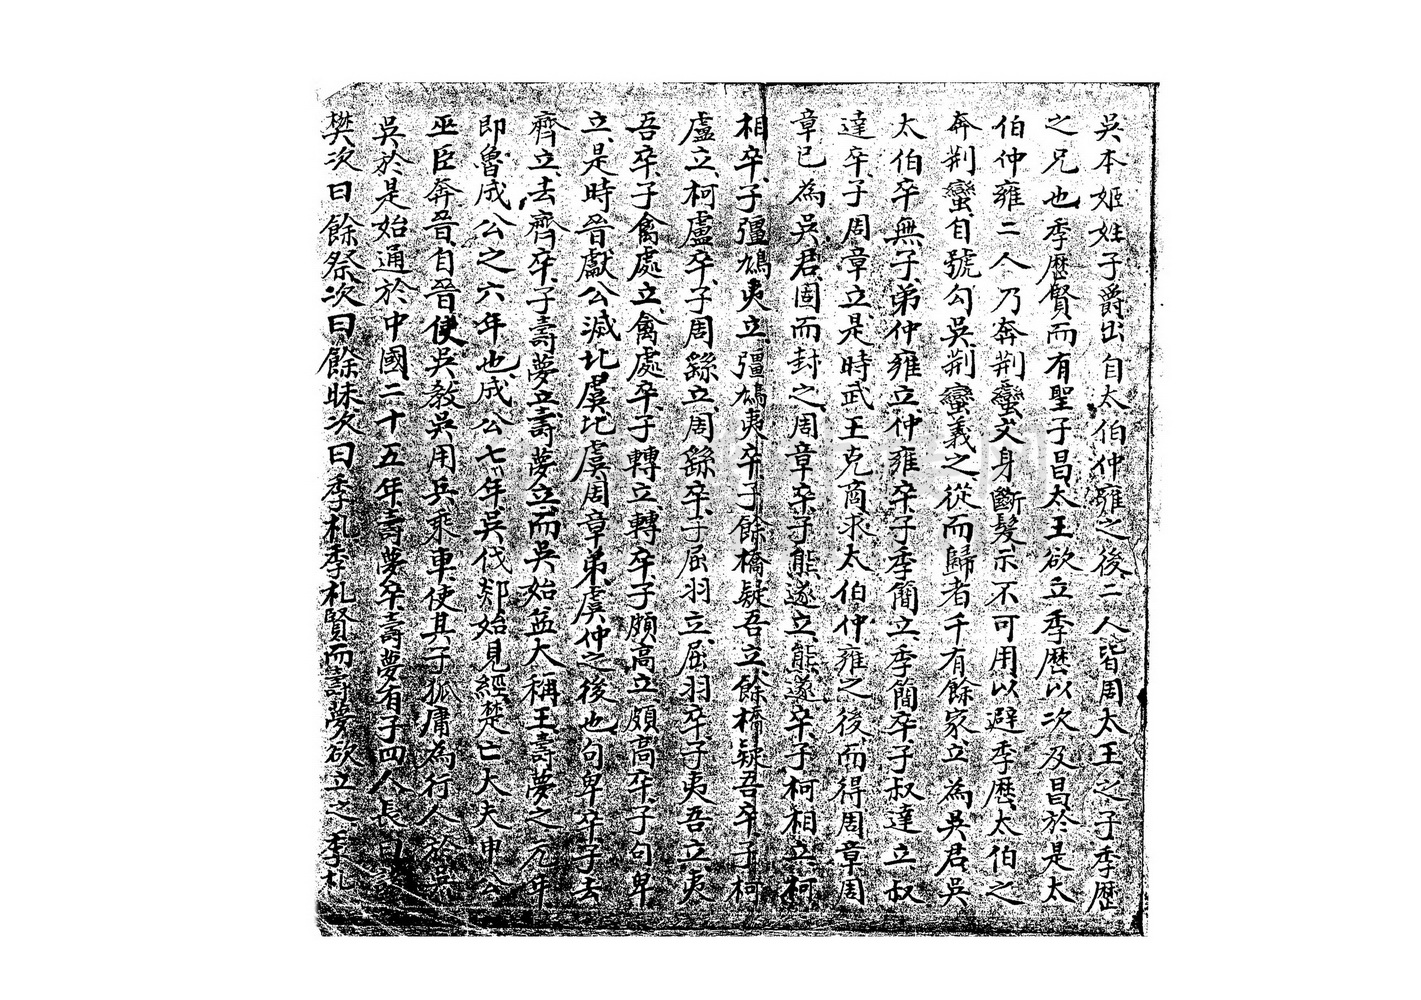 吳本姬姓子爵出自太伯仲雍之後二人皆周太王之子季歷
之兄也季歷賢而有聖子昌太王欲立季歷以次及昌於是太
伯仲雍二人乃奔荆蠻文身斷髮示不可用以避季歷太伯之
奔荆蠻自號勾吳荆蠻義之從而歸者千有餘家立為吳君吳
太伯卒無子弟仲雍立仲雍卒子季簡立季簡卒子叔達立叔
達卒子周章立是時武王克商求太伯仲雍之後而得周章周
章已為吳君固而封之周章卒子熊遂立熊遂卒子柯相立柯
相卒子彊鳩夷立彊鳩夷卒子餘橋疑吾立餘橋疑吾卒子柯
盧立柯盧卒子周繇立周繇卒子屈羽立屈羽卒子夷吾立夷
吾卒子禽處立禽處卒子轉立轉卒子頗高立頗高卒子句卑
立是時晉獻公滅北虞北虞周章弟虞仲之後也句卑卒子去
齊立去齊卒子壽夢立壽夢立而吳始益大稱王壽夢之元年
即魯成公之六年也成公七年吳伐郯始見經楚亡大夫申公
巫臣奔晉自晉使吳教吳用兵乘車使其子狐庸為行人於吳
吳於是始通於中國二十五年壽夢卒壽夢有子四人長曰諸
樊次曰餘祭次曰餘昧次曰季札季札賢而壽夢欲立之季札